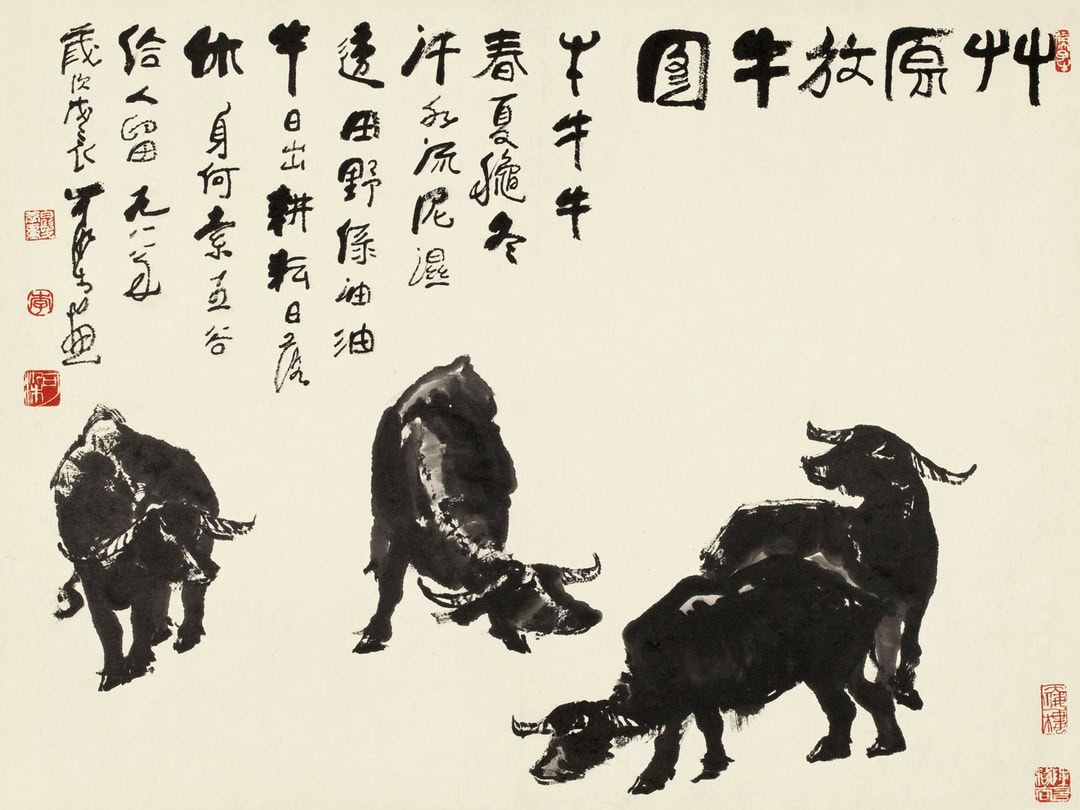 艸原放牛圖
牛牛牛
春夏穐冬
汗水流泥濕
透田野綠油油
牛日出耕耘日落
休身何索五谷
給人留一九八八年
歲次戊辰畫